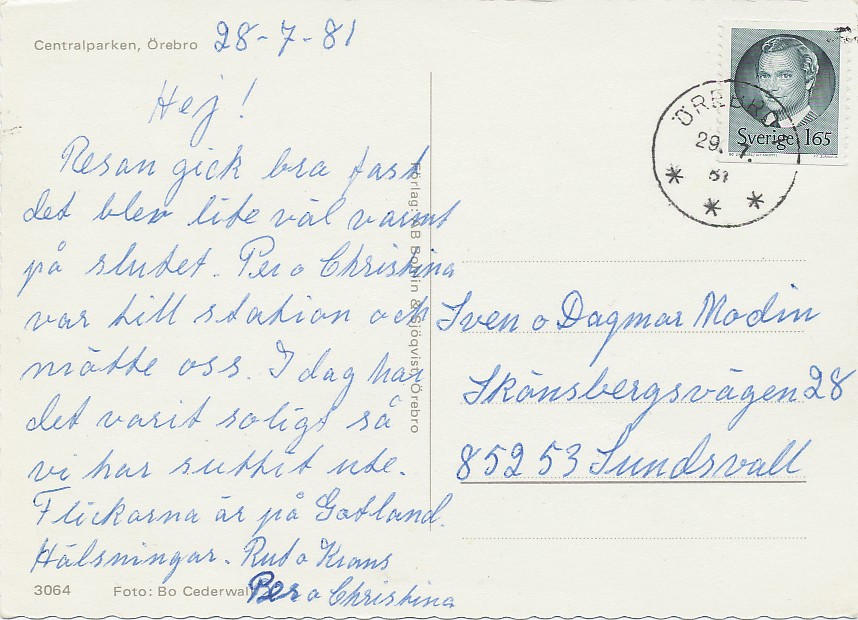 Centralparken, Örebro 28-7-81
Hej!
Resan gick bra fast
det blev lite väl varmt
på slutet. Per o Christina
var till station och
mötte oss. I dag har
det varit soligt så
vi har suttit ute.
Flickorna är på Gotland.
Hälsningar. Rut o Krans
Per o Christina
3064 Foto: Bo Cederwall
Förlag: AB Bolin & Sjöqvist, Örebro
ÖREBRO
29. 7.
81
Sverige 165
Sven o Dagmar Modin
Skönsbergsvägen 28
852 53 Sundsvall